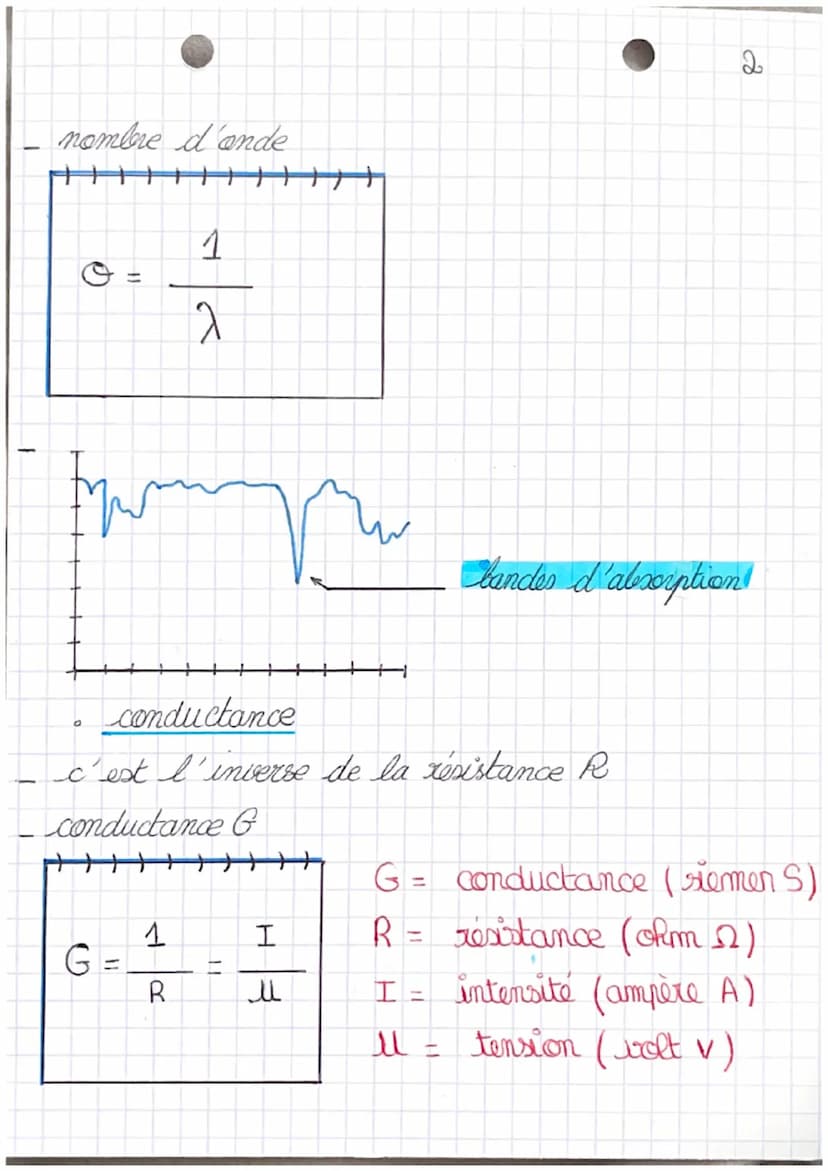 2
- nombre d'onde
σ = 1 / λ
bandes d'absorption
• conductance
- c'est l'inverse de la résistance R
- conductance G
G = 1 / R = I / U
G = conductance (siemen S)
R = résistance (ohm Ω)
I = intensité (ampère A)
U = tension (volt V)